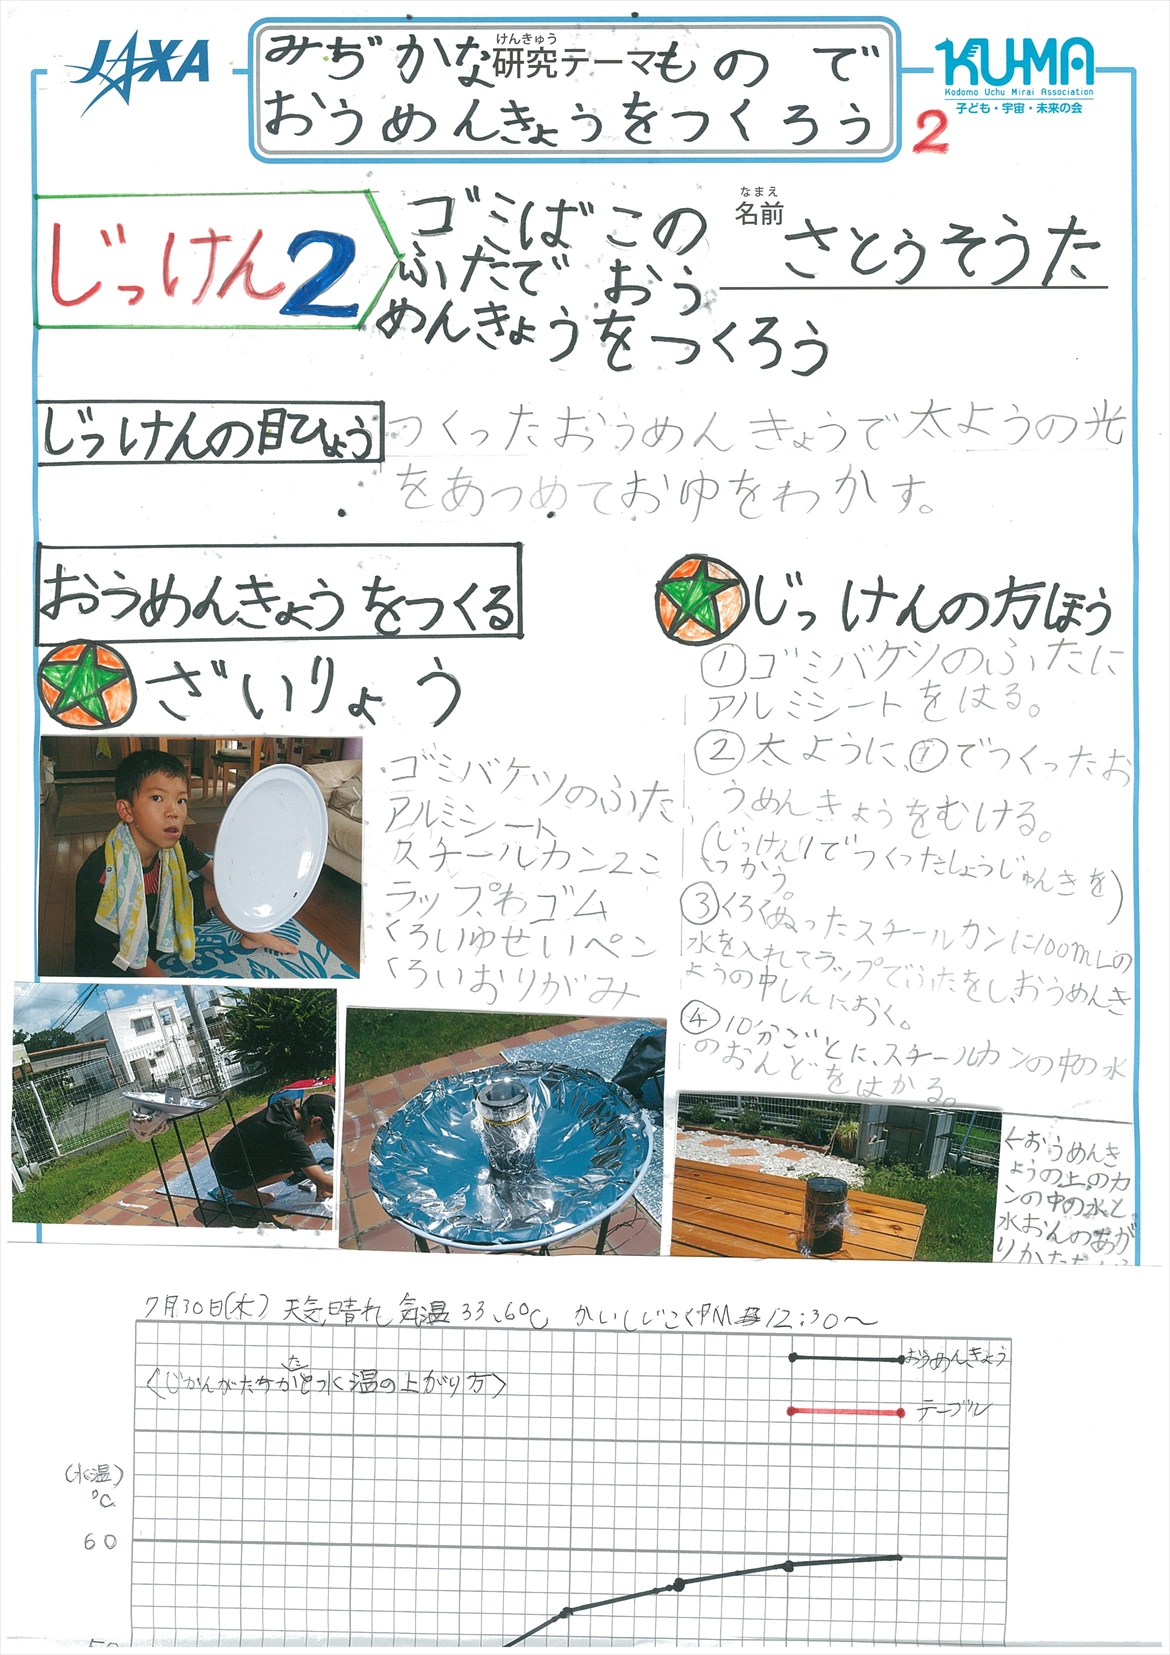 JAXA
けんきゅう
研究テーマ
みぢかなもので
おうめんきょうをつくろう
KU-MA
Kodomo Uchu Mirai Association
子ども・宇宙・未来の会
2
じっけん2
ゴミばこの
ふたで おう
めんきょうをつくろう
なまえ
名前
さとうそうた
じっけんの目ひょう
つくったおうめんきょうで太ようの光
をあつめておゆをわかす。
おうめんきょうをつくる
ざいりょう
ゴミバケツのふた
アルミシート
スチールカン2こ
ラップ、わゴム
くろいゆせいペン
くろいおりがみ
じっけんの方ほう
①ゴミバケツのふたに
アルミシートをはる。
②太ように、①でつくったお
うめんきょうをむける。
(じっけん1でつくったしょうじゅんきを
つかう。)
③くろくぬったスチールカンに100mLの
水を入れてラップでふたをし、おうめんき
ょうの中しんにおく。
④10ぷんかごとに、スチールカンの中の水
のおんどをはかる。
←おうめんき
ょうの上のカ
ンの中の水と
水おんのあが
りかた
7月30日(木) 天気晴れ 気温33.6℃ かいしじこくPM12:30〜
おうめんきょう
テーブル
水温の上がり方〉
(水温)
℃
60
50